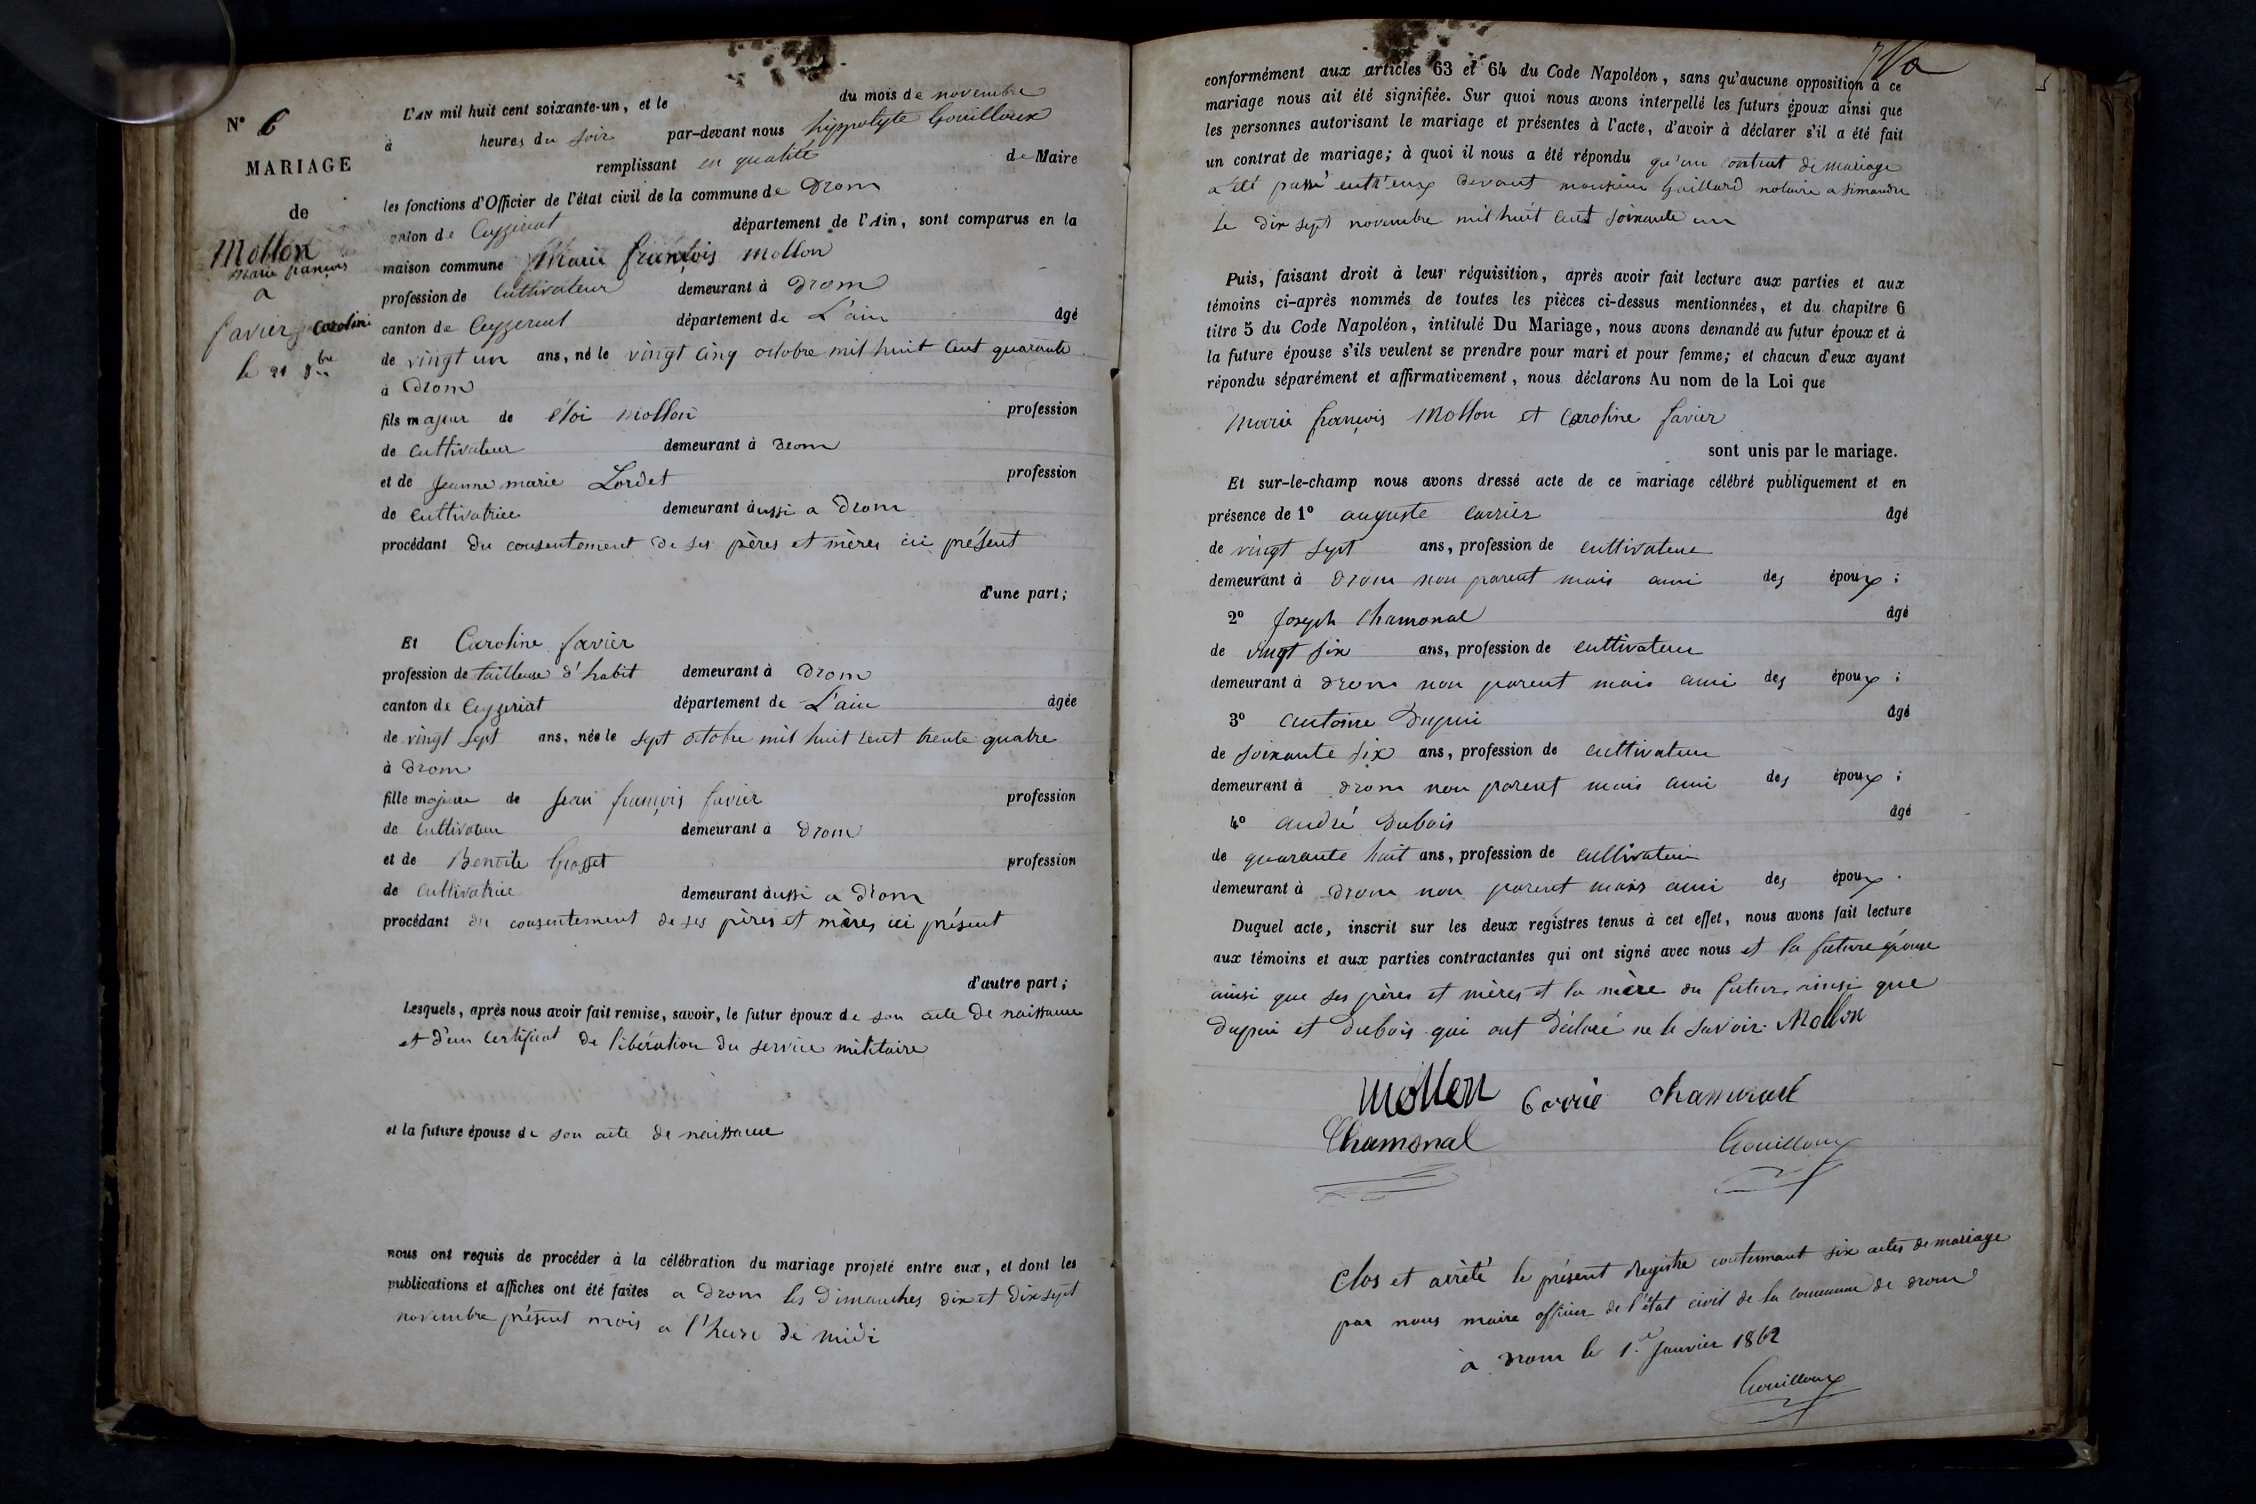 N° 6
MARIAGE
de
Mollon
marie françois
a
favier caroline
le 21 9bre
L'AN mil huit cent soixante-un, et le du mois de novembre
à heures du soir par-devant nous hippolyte Gouilloux
remplissant en qualité de Maire
les fonctions d'Officier de l'état civil de la commune de Drom
canton de Ceyzeriat département de l'Ain, sont comparus en la
maison commune Marie françois mollon
profession de Cultivateur demeurant à Drom
canton de Ceyzeriat département de L'ain âgé
de vingt un ans, né le vingt cinq octobre mil huit cent quarante
à Drom
fils majeur de éloi mollon profession
de cultivateur demeurant à Drom
et de Jeanne marie Lordet profession
de cultivatrice demeurant aussi a Drom
procédant du consentement de ses pères et mères ici présent
d'une part;
Et Caroline favier
profession de tailleuse d'habit demeurant à Drom
canton de Ceyzeriat département de L'ain âgée
de vingt sept ans, née le sept octobre mil huit cent trente quatre
à Drom
fille majeure de Jean françois favier profession
de cultivateur demeurant à Drom
et de Benoite Grosset profession
de cultivatrice demeurant aussi a Drom
procédant du consentement de ses pères et mères ici présent
d'autre part;
Lesquels, après nous avoir fait remise, savoir, le futur époux de son acte de naissance
et d'un certificat de libération du service militaire
et la future épouse de son acte de naissance
nous ont requis de procéder à la célébration du mariage projeté entre eux, et dont les
publications et affiches ont été faites a Drom les Dimanches dix et dix sept
novembre présent mois a l'heure de midi
conformément aux articles 63 et 64 du Code Napoléon, sans qu'aucune opposition à ce
mariage nous ait été signifiée. Sur quoi nous avons interpellé les futurs époux ainsi que
les personnes autorisant le mariage et présentes à l'acte, d'avoir à déclarer s'il a été fait
un contrat de mariage; à quoi il nous a été répondu qu'un contrat de mariage
a été passé entr'eux devant monsieur Gaillard notaire a simandre
Le dix sept novembre mil huit cent soixante un
Puis, faisant droit à leur réquisition, après avoir fait lecture aux parties et aux
témoins ci-après nommés de toutes les pièces ci-dessus mentionnées, et du chapitre 6
titre 5 du Code Napoléon, intitulé Du Mariage, nous avons demandé au futur époux et à
la future épouse s'ils veulent se prendre pour mari et pour femme; et chacun d'eux ayant
répondu séparément et affirmativement, nous déclarons Au nom de la Loi que
Marie françois Mollon et Caroline favier
sont unis par le mariage.
Et sur-le-champ nous avons dressé acte de ce mariage célébré publiquement et en
présence de 1° auguste Carrier âgé
de vingt sept ans, profession de cultivateur
demeurant à Drom non parent mais ami des époux;
2° Joseph Chamonal âgé
de vingt six ans, profession de cultivateur
demeurant à Drom non parent mais ami des époux;
3° antoine Dupui âgé
de soixante six ans, profession de cultivateur
demeurant à Drom non parent mais ami des époux;
4° andré Dubois âgé
de quarante huit ans, profession de cultivateur
demeurant à Drom non parent mais ami des époux.
Duquel acte, inscrit sur les deux registres tenus à cet effet, nous avons fait lecture
aux témoins et aux parties contractantes qui ont signé avec nous et la future épouse
ainsi que ses pères et mères et la mère du futur, ainsi que
Dupui et Dubois qui ont déclaré ne le savoir. Mollon
Mollon Carrié Chamonal
Chamonal Gouilloux
Clos et arrêté le présent Registre contennant six actes de mariage
par nous maire officier de l'état civil de la commune de Drom
à Drom le 1er Janvier 1862
Gouilloux